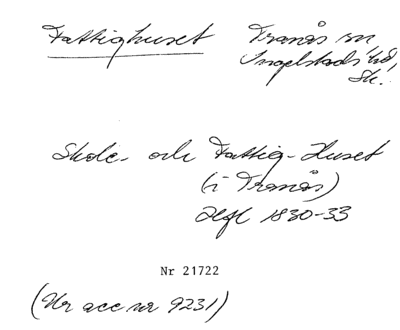 Fattighuset Tranås sn
Ingelstads hd,
Sk.
Skole- och Fattig-Huset
(i Tranås)
Hfl 1830-33
Nr 21722
(Ur acc nr 9231)